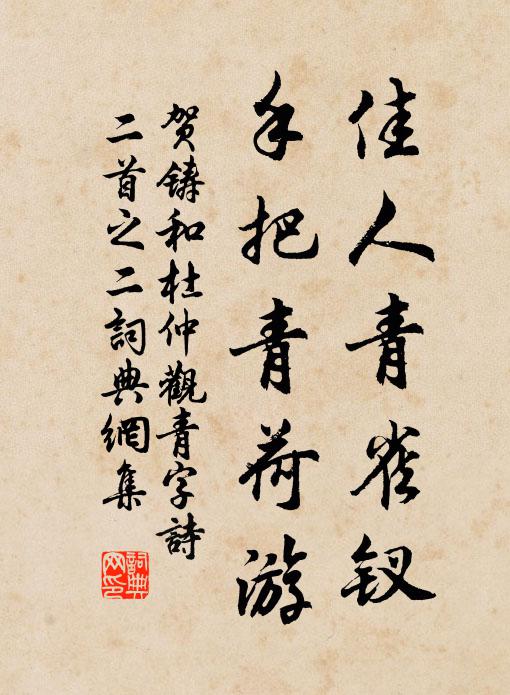 佳人青雀钗
手把青荷游
贺鑄和杜仲觀青字詩
二首之二詞典網集
詞典网印